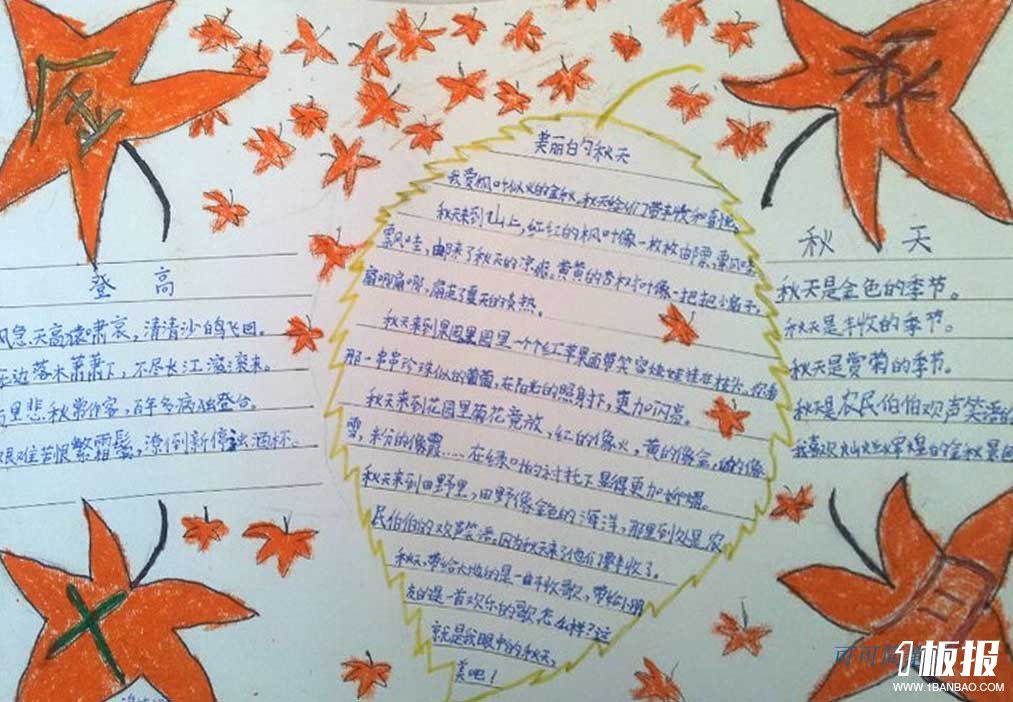 金
秋
十
月
登 高
风急天高猿啸哀，清清沙鸥飞回。
无边落木萧萧下，不尽长江滚滚来。
万里悲秋常作客，百年多病独登台。
艰难苦恨繁霜鬓，潦倒新停浊酒杯。
美丽的秋天
我爱枫叶似火的金秋，秋天给我们带来丰收和喜悦。
秋天来到山上，红红的枫叶像一枚枚邮票，飘哇
飘哇，邮来了秋天的凉爽。黄黄的杏树叶像一把把小扇子，
扇呀扇呀，扇走了夏天的炎热。
秋天来到果园里，园里一个个红苹果面带笑容
那一串串珍珠似的葡萄，在阳光的照身下，更加闪亮。
秋天来到花园里菊花竞放，红的像火，黄的像金，
雪，粉的像霞……在绿叶的衬托下显得更加娇媚。
秋天来到田野里，田野像金色的海洋，那里到处是农
民伯伯的欢声笑语，因为秋天来了他们要丰收了。
秋天，带给大地的是一曲丰收歌，带给小朋
友的是一首欢乐的歌。怎么样？这
就是我眼中的秋天，
美吧！
秋 天
秋天是金色的季节。
秋天是丰收的季节。
秋天是赏菊的季节。
秋天是农民伯伯欢声笑语的
我喜欢灿烂辉煌的金秋景
1板报
WWW.1BANBAO.COM